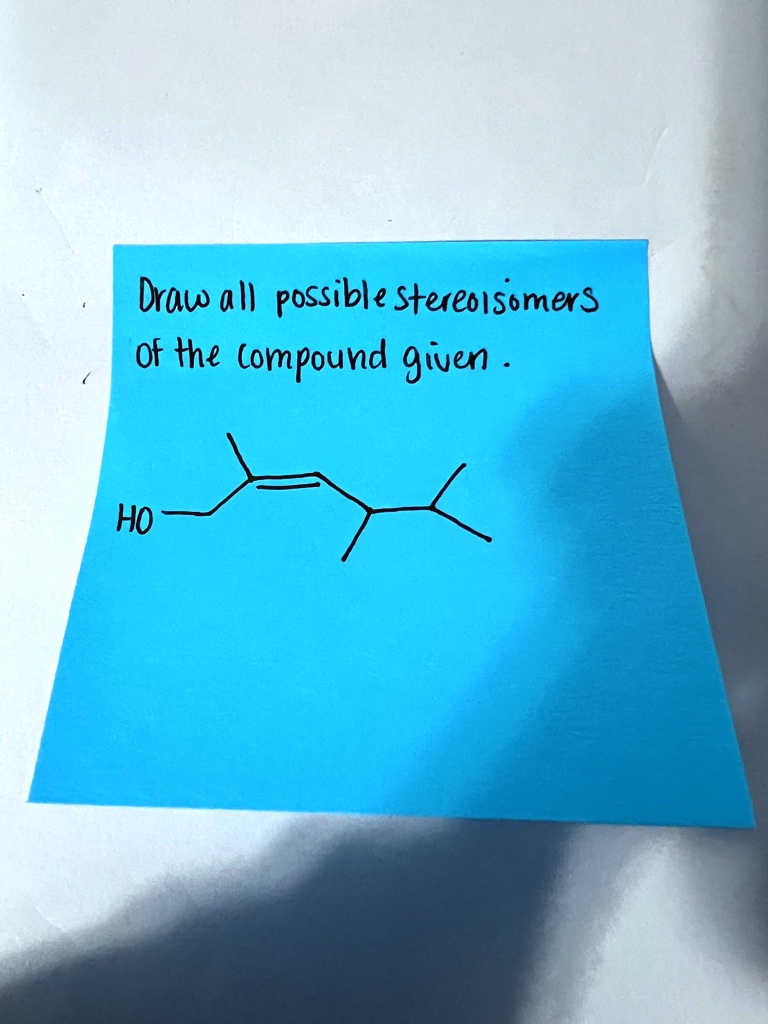 Draw all possible stereoisomers
of the compound given.
HO